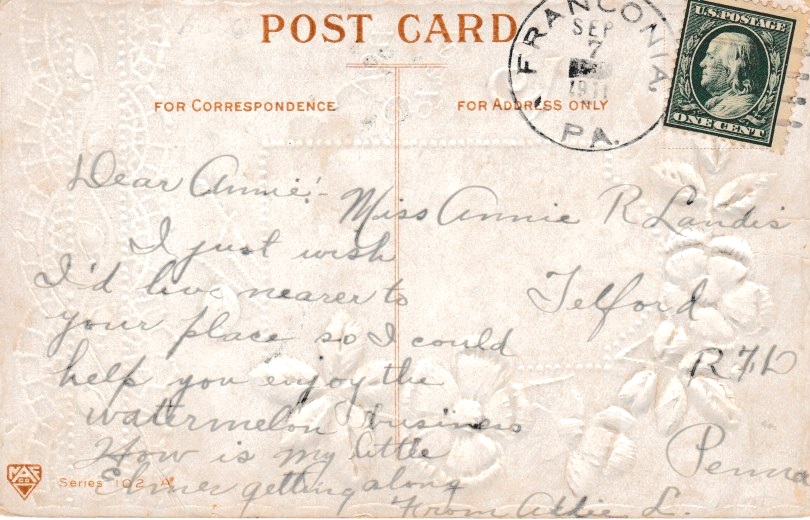 POST CARD
FOR CORRESPONDENCE
FOR ADDRESS ONLY
FRANCONIA,
SEP
7
1911
PA.
U.S. POSTAGE
ONE CENT
Dear Annie:-
I just wish
I'd live nearer to
your place so I could
help you enjoy the
watermelon business
How is my little
Elmer getting along
From Allie L.
Miss Annie R Landis
Telford
R F D
Penna
M.A.P. CO.
Series 102 A